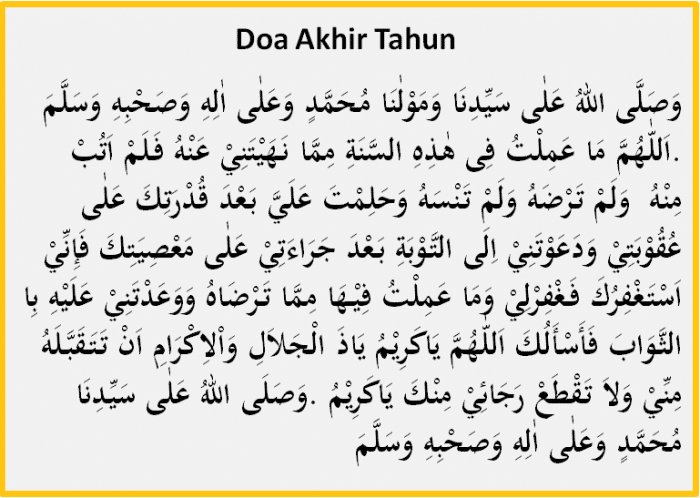 Doa Akhir Tahun
وَصَلَّى اللهُ عَلٰى سَيِّدِنَا وَمَوْلٰنَا مُحَمَّدٍ وَعَلٰى اٰلِهِ وَصَحْبِهِ وَسَلَّمَ
.اَللّٰهُمَّ مَا عَمِلْتُ فِى هٰذِهِ السَّنَةِ مِمَّا نَهَيْتَنِيْ عَنْهُ فَلَمْ اَتُبْ
مِنْهُ وَلَمْ تَرْضَهُ وَلَمْ تَنْسَهُ وَحَلِمْتَ عَلَيَّ بَعْدَ قُدْرَتِكَ عَلٰى
عُقُوْبَتِيْ وَدَعَوْتَنِيْ اِلَى التَّوْبَةِ بَعْدَ جَرَاءَتِيْ عَلٰى مَعْصِيَتِكَ فَإِنِّيْ
اَسْتَغْفِرُكَ فَغْفِرْلِيْ وَمَا عَمِلْتُ فِيْهَا مِمَّا تَرْضَاهُ وَوَعَدْتَنِيْ عَلَيْهِ بِا
الثَّوَابَ فَأَسْأَلُكَ اَللّٰهُمَّ يَاكَرِيْمُ يَاذَ الْجَلَالِ وَاْلاِكْرَامِ اَنْ تَتَقَبَّلَهُ
مِنِّيْ وَلاَ تَقْطَعْ رَجَائِيْ مِنْكَ يَاكَرِيْمُ .وَصَلَى اللهُ عَلٰى سَيِّدِنَا
مُحَمَّدٍ وَعَلٰى اٰلِهِ وَصَحْبِهِ وَسَلَّمَ